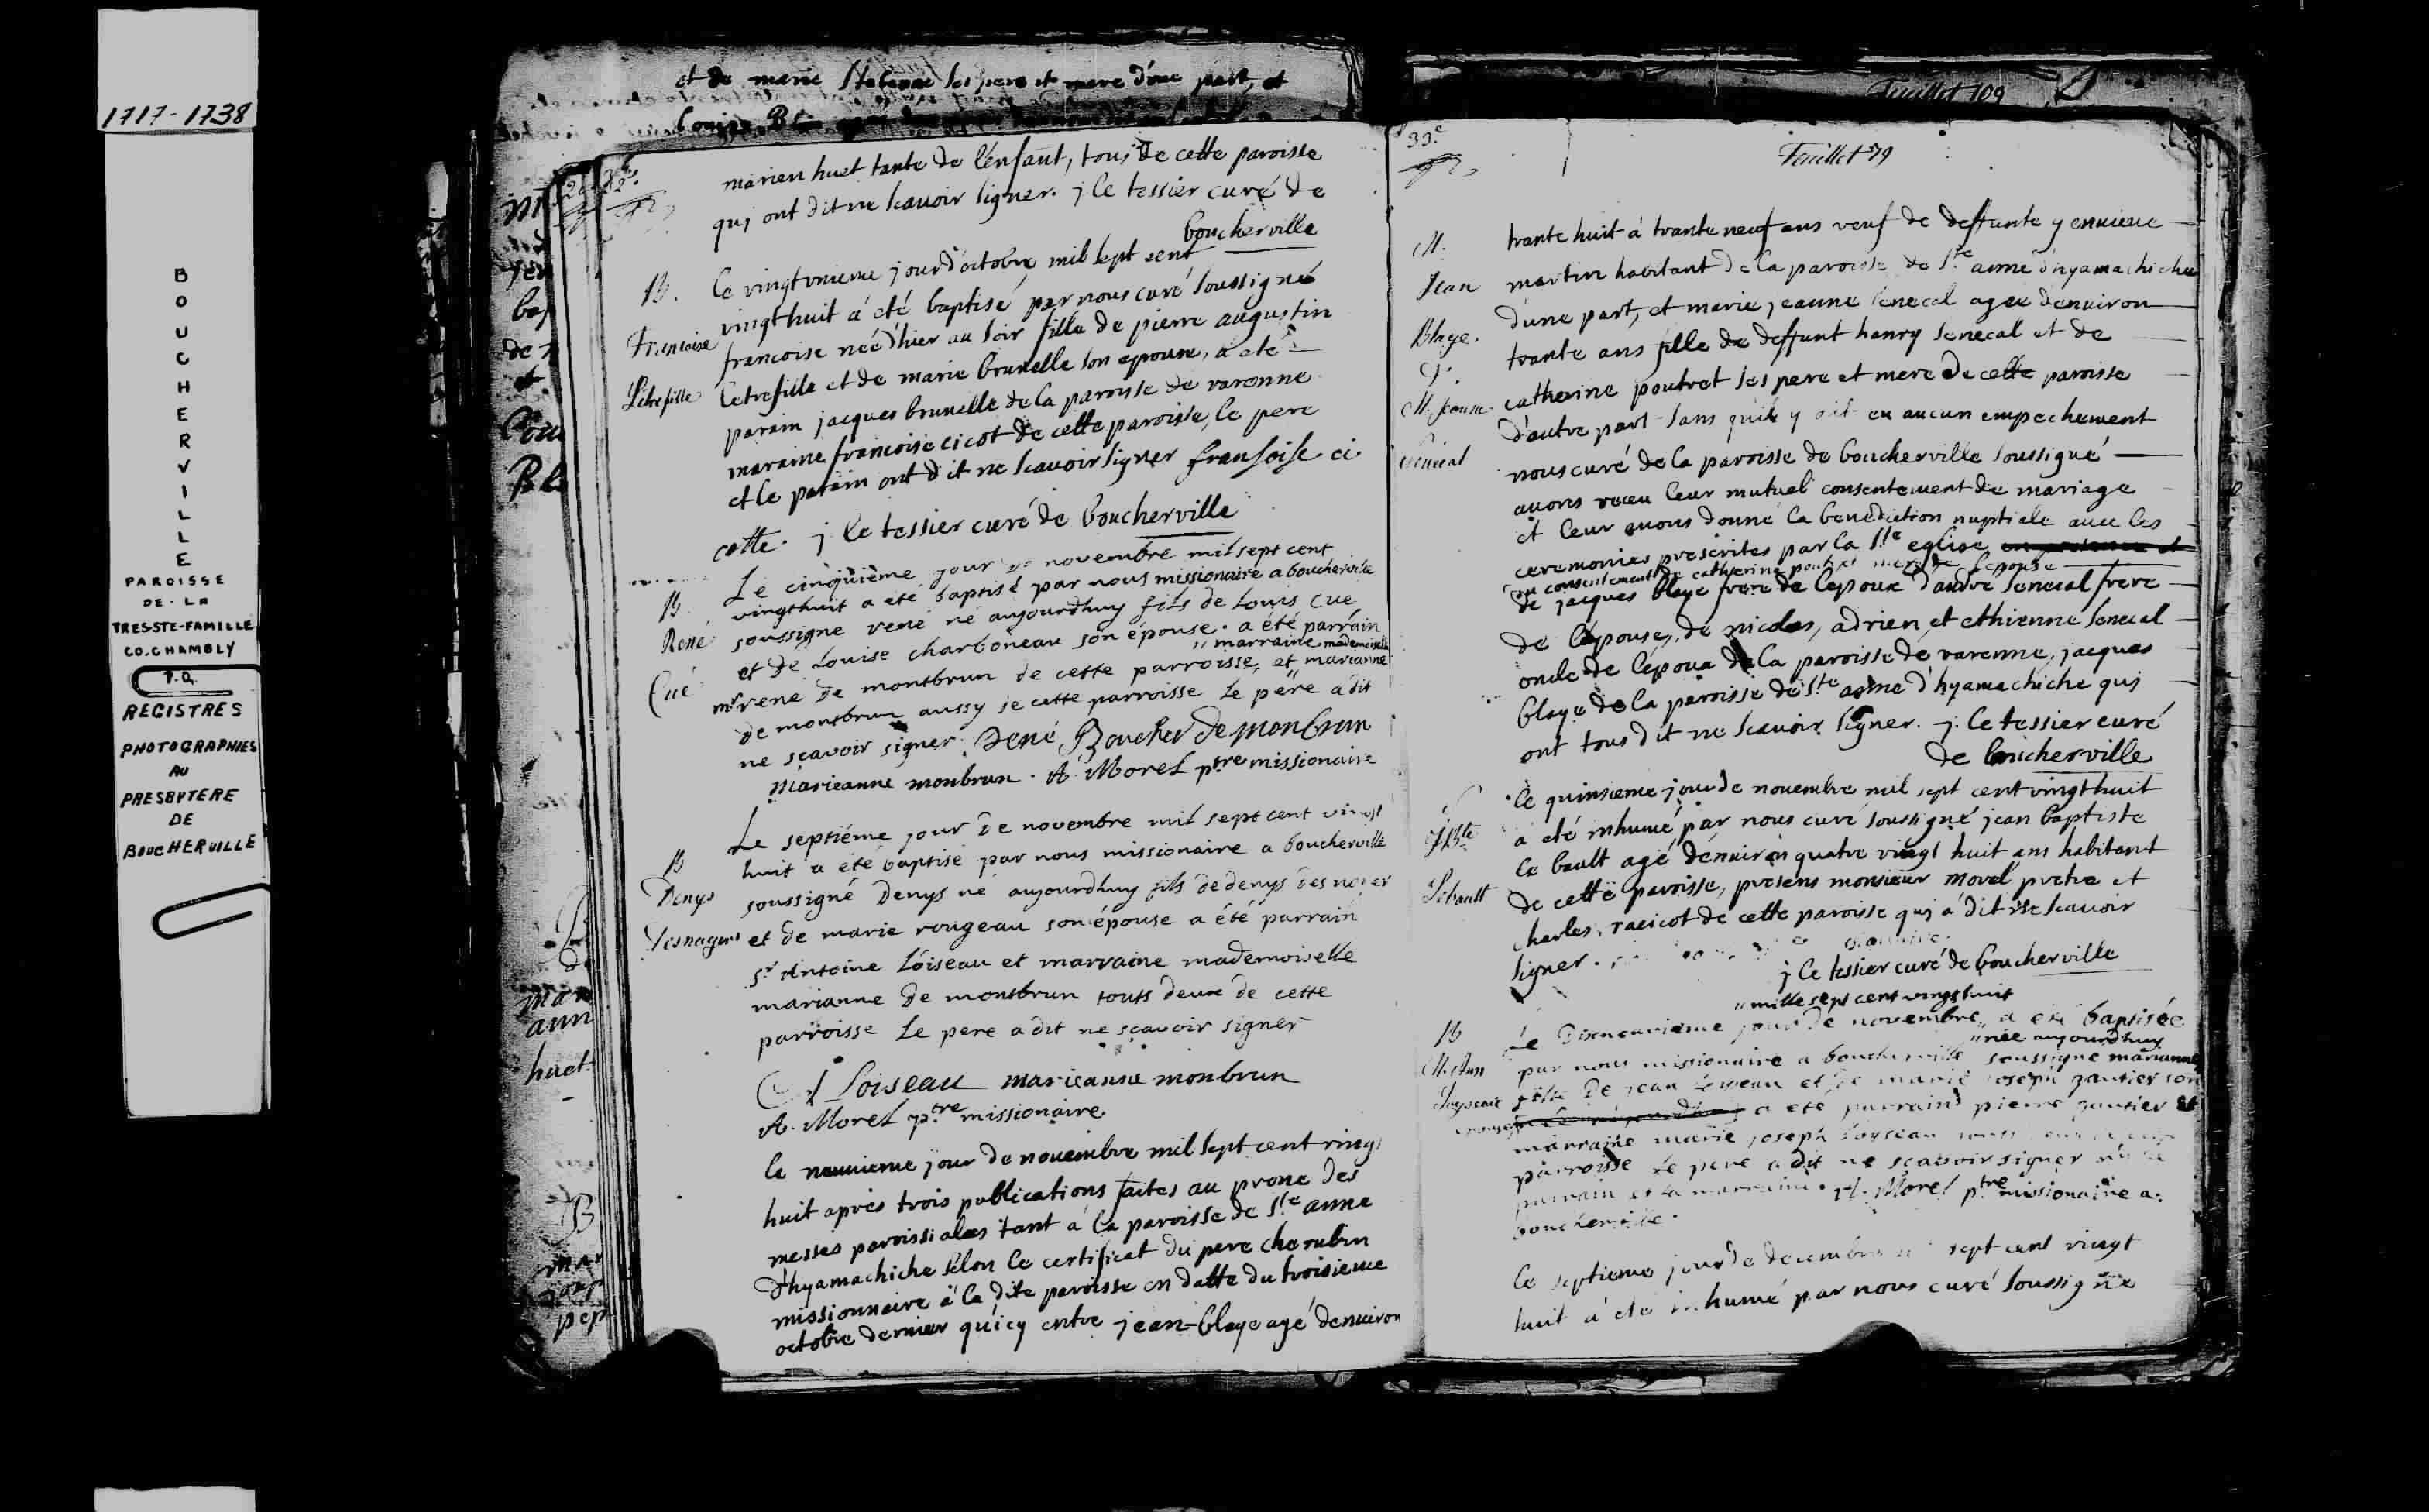 1717-1738
BOUCHERVILLE
PAROISSE
DE-LA
TRES-STE-FAMILLE
CO.CHAMBLY
P.Q.
REGISTRES
PHOTOGRAPHIES
AU
PRESBYTERE
DE
BOUCHERVILLE
et de marie les pere et mere d'une part, et
marien huet tante de l'enfant, tous de cette paroisse
quj ont dit ne scavoir signer. j le tessier curé de
boucherville
B.
Francoise
Létrefille
le vingtunieme jour d'octobre mil sept cent
vingthuit a été baptisé par nous curé soussigné
francoise néé d'hier au soir fille de pierre augustin
letrefille et de marie brunelle son epouse, a eté
parain jacques brunelle de la paroisse de varenne
maraine francoise cicot de cette paroisse, le pere
et le parain ont dit ne scavoir signer fransoise ci
cotte. j le tessier curé de boucherville
B.
René
Cué
Le cinquième jour de novembre mil sept cent
vingthuit a été baptisé par nous missionaire a boucherville
soussigné rené né aujourdhuy fils de Louis Cue
et de Louise charboneau son épouse. a été parrain
" marraine mademoiselle
mr rené de montbrun de cette parroisse, et marianne
de montbrun aussy de cette parroisse Le père a dit
ne sçavoir signer. René Boucher de monbrun
Marieanne monbrun. A. Morel ptre missionaire
B
Denys
Desnoyers
Le septième jour de novembre mil sept cent vingt
huit a été baptisé par nous missionaire a boucherville
soussigné Denys né aujourdhuy fils de denys des noyer
et de marie rougeau son épouse a été parrain
Sr Antoine Loiseau et marraine mademoiselle
marianne de montbrun touts deux de cette
parroisse Le pere a dit ne sçavoir signer
A Loiseau marieanne monbrun
A. Morel ptre missionaire
le neuvieme jour de novembre mil sept cent vingt
huit après trois publications faites au prone des
messes paroissiales tant a la paroisse de Ste anne
d'hyamachiche selon le certificat du pere cherubin
missionnaire à la dite paroisse en datte du troisieme
octobre dernier qu'icy entre jean-blaye agé denviron
33e
Feuillet 109
Feuillet 79
M.
Jean
Blaye.
&.
M. Jeanne
Sénécal
trante huit à trante neuf ans veuf de deffunte genvieve
martin habitant de la paroisse de Ste anne d'hyamachiche
d'une part, et marie jeanne senecal agee denviron
trante ans fille de deffunt henry senecal et de
catherine poutret ses pere et mere de cette paroisse
d'autre part sans qu'il y ait eu aucun empechement
nous curé de la paroisse de boucherville soussigné
avons receu leur mutuel consentement de mariage
et leur avons donné la benediction nuptiale avec les
ceremonies prescrites par la Ste eglise
du consentement de catherine poutret mere de lepouse
de jacques blaye frere de lepoux d'andre senecal frere
de lépouse, de nicolas, adrien, et ethienne senecal
oncle de lépoux de la paroisse de varenne, jacques
blaye de la paroisse de Ste anne d'hyamachiche quj
ont tous dit ne scavoir signer. j. le tessier curé
de boucherville
S
J Bte
Lébault
le quinsieme jour de novembre mil sept cent vingthuit
a eté inhumé par nous curé soussigné jean baptiste
le bault agé denviron quatre vingt huit ans habitant
de cette paroisse, presens monsieur morel pretre et
charles racicot de cette paroisse quj a dit ne scavoir
signer.
j le tessier curé de boucherville
B
M. Ann
Loyseau
" mille sept cent vingt huit
Le Disneuvieme jour de novembre " a été baptisée
" née aujourdhuy
par nous missionaire a boucherville soussigné marianne
fille de jean Loyseau et de marie joseph gautier son
epouse a été parrain pierre gautier et
marraine marie joseph Loyseau
parroisse Le pere a dit ne scavoir signer
parrain et la marraine. A. Morel ptre missionaire a
boucherville.
le septieme jour de decembre sept cent vingt
huit a été inhumé par nous curé soussigné